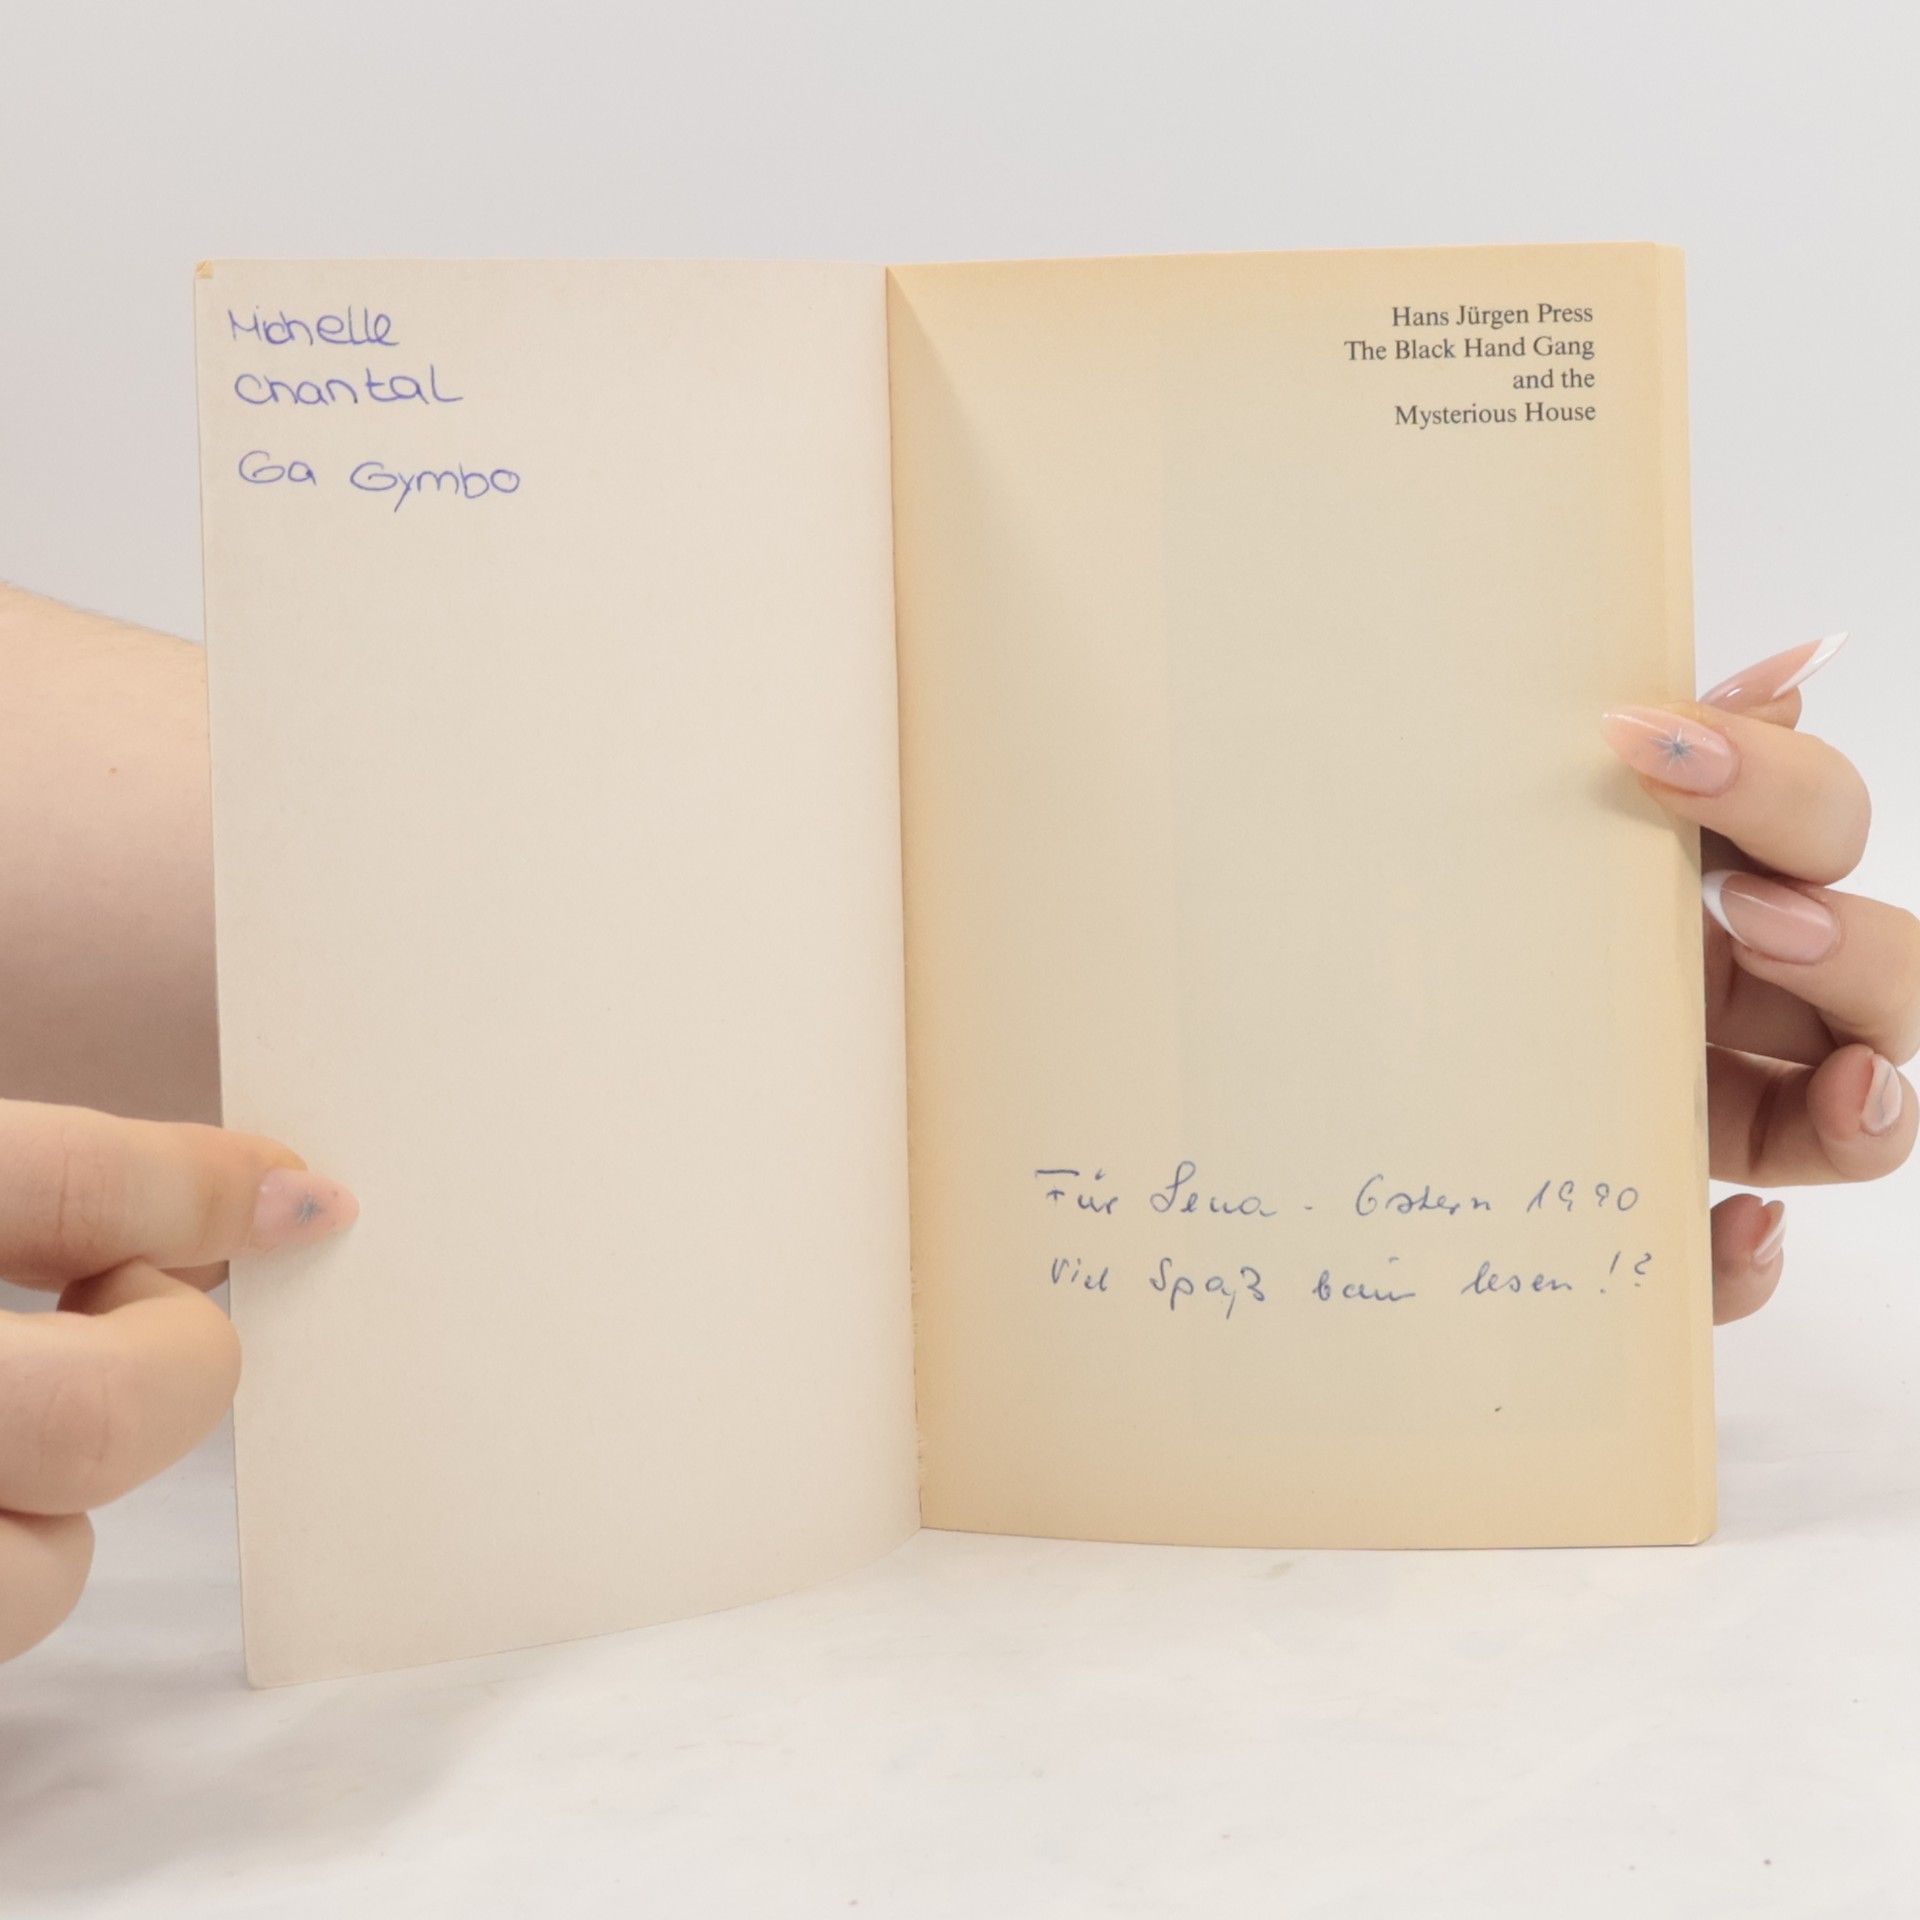 Michelle
Chantal
Ga Gymbo
Hans Jürgen Press
The Black Hand Gang
and the
Mysterious House
Für Lena - Ostern 1990
Viel Spaß beim lesen!?